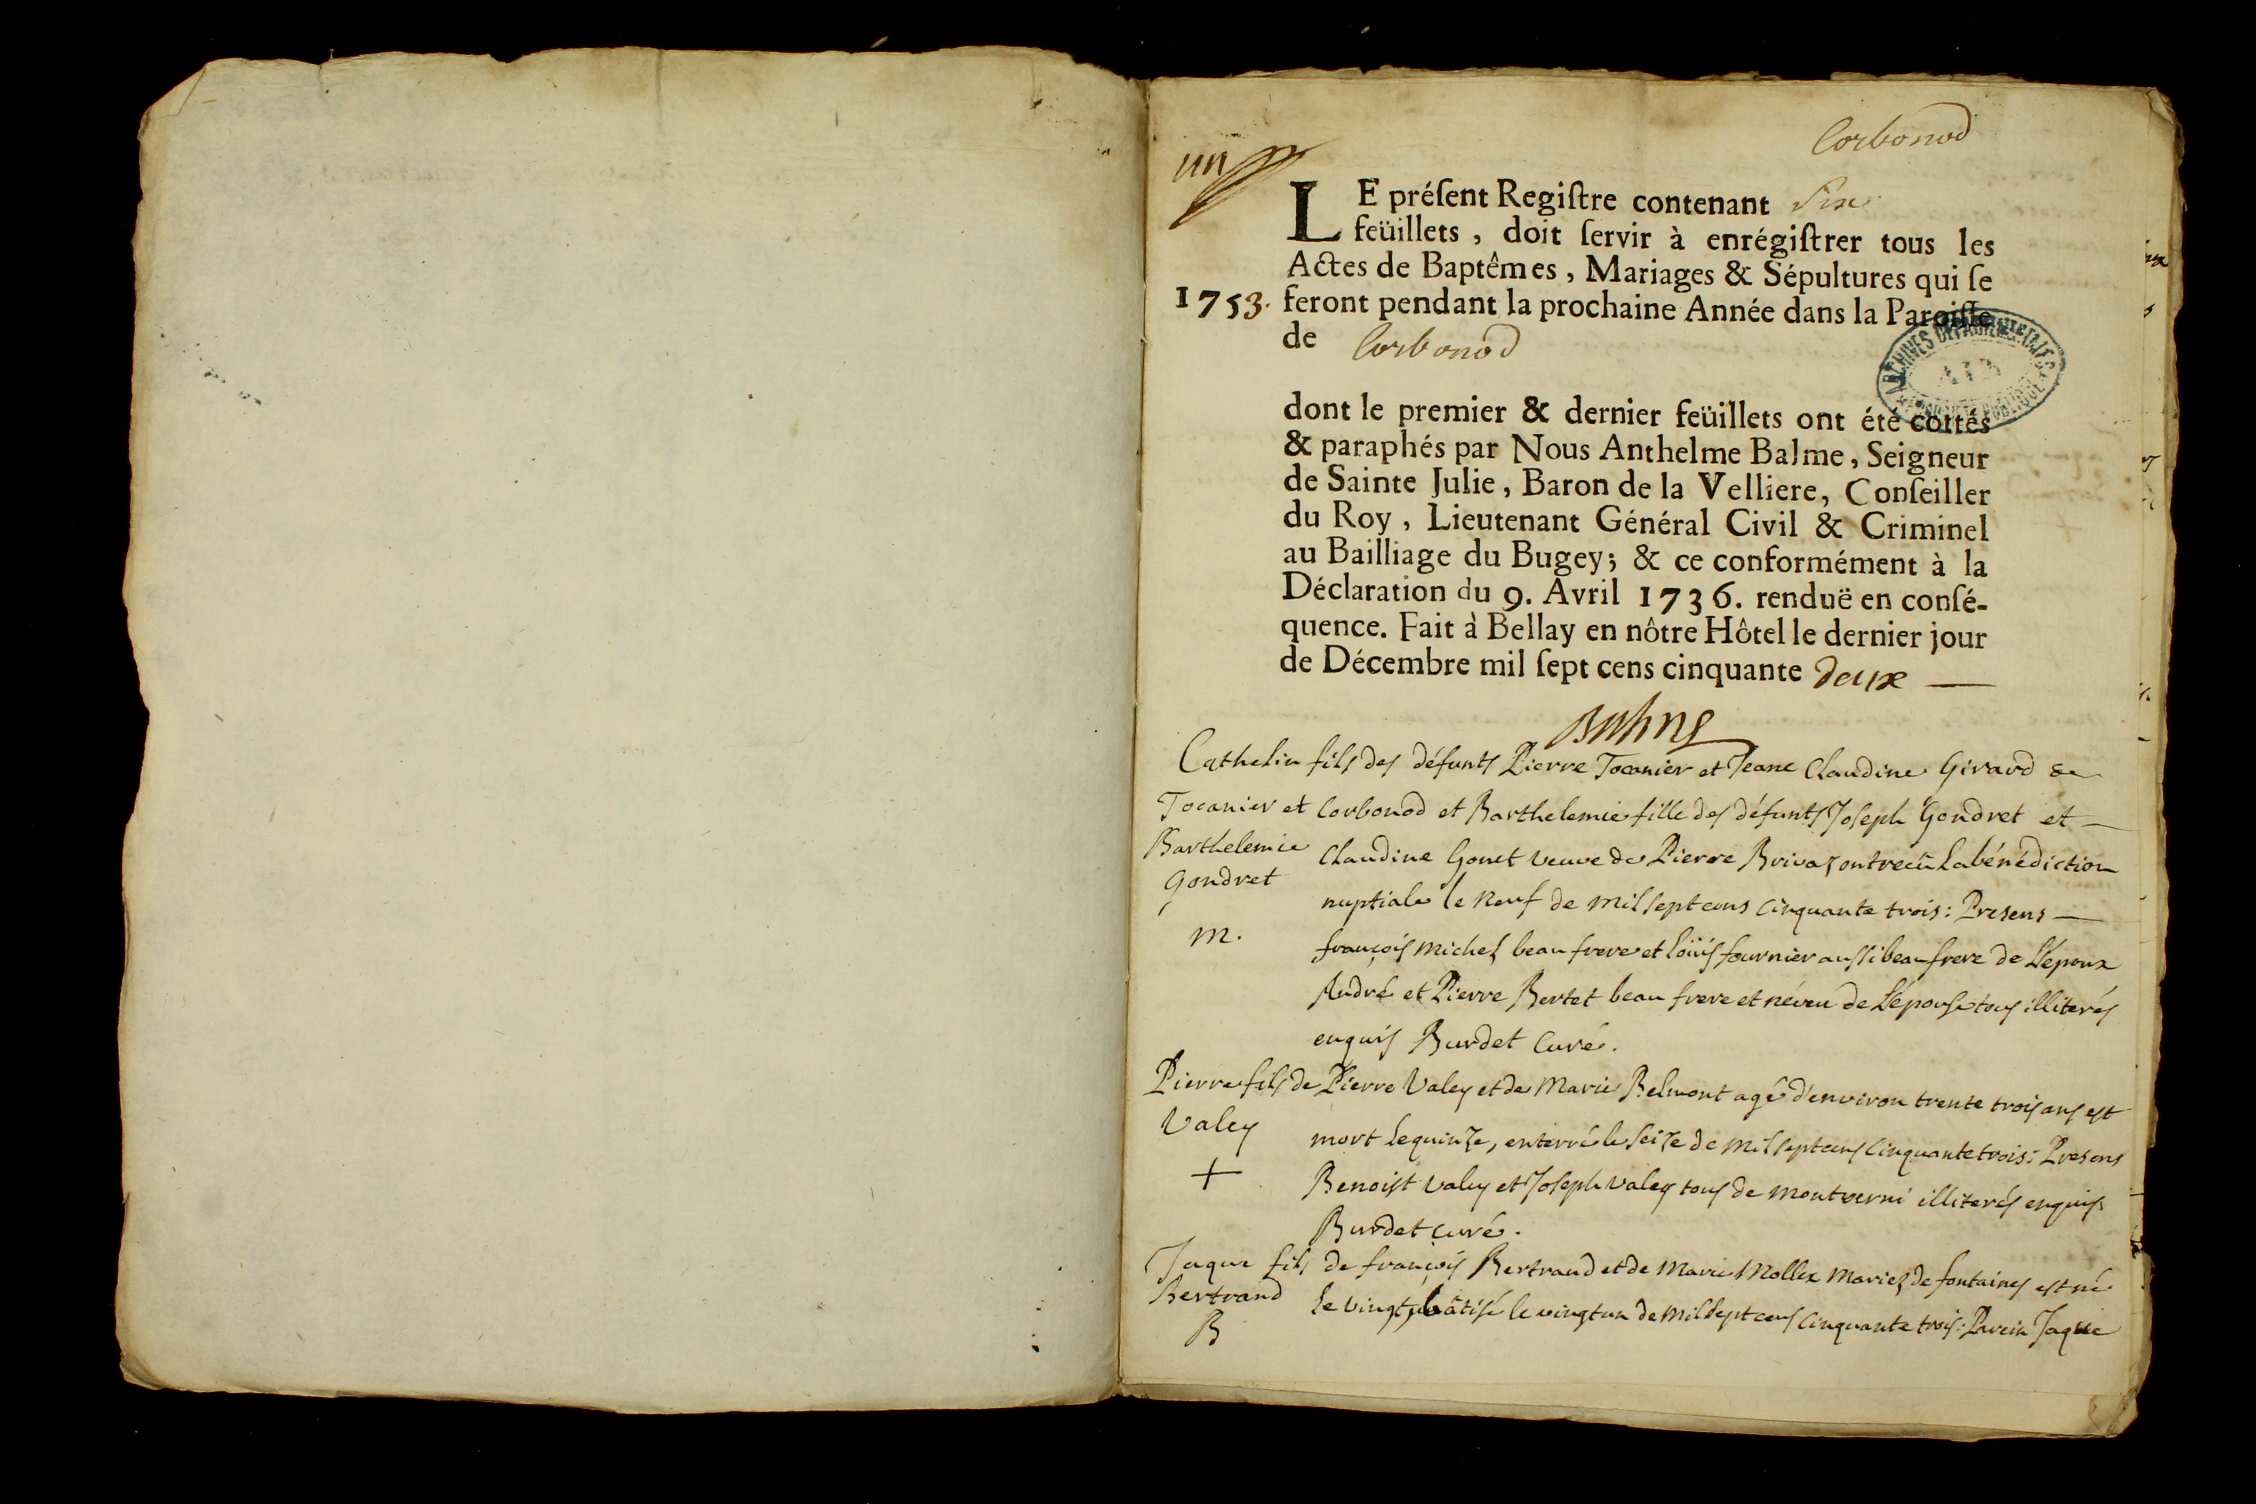 Corbonod
un
LE préſent Regiſtre contenant Six
feüillets, doit ſervir à enrégiſtrer tous les
Actes de Baptêmes, Mariages & Sépultures qui ſe
1753. feront pendant la prochaine Année dans la Paroiſſe
de Corbonod
ARCHIVES DEPARTEMENTALES
AIN
dont le premier & dernier feüillets ont été cottés
& paraphés par Nous Anthelme Balme, Seigneur
de Sainte Julie, Baron de la Velliere, Conſeiller
du Roy, Lieutenant Général Civil & Criminel
au Bailliage du Bugey; & ce conformément à la
Déclaration du 9. Avril 1736. renduë en conſé-
quence. Fait à Bellay en nôtre Hôtel le dernier jour
de Décembre mil ſept cens cinquante deux
Balme
Cathelin fils des défunts Pierre Tocanier et Jeane Claudine Girard de
Tocanier et Corbonod et Barthelemie fille des défunts Joseph Gondret et
Barthelemie Claudine Gonet veuve de Pierre Brivaz ont reçû la bénédiction
Gondret nuptiale le neuf de mil sept cens cinquante trois: Presens
m. françois michez beau frere et Loüis fournier aussi beau frere de L'époux
André et Pierre Bertet beau frere et néveu de L'épouse tous illiterés
enquis Burdet Curé.
Pierre fils de Pierre Valey et de Marie Belmont agé d'environ trente trois ans est
Valey mort le quinze, enterré le seize de mil sept cens cinquante trois: Presens
+ Benoist Valey et Joseph Valey tous de montverni illiterés enquis
Burdet curé.
Jaque fils de françois Bertrand et de Marie Mollex mariez de fontaines est né
Bertrand le vingt, bâtisé le vingt un de mil sept cens cinquante trois: Parein Jaque
B